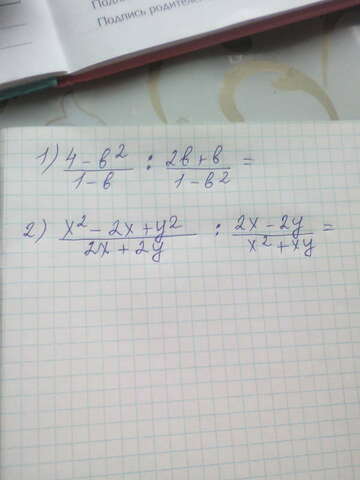 Подпись родител
1) 4 - в² / 1 - в : 2в + в / 1 - в² =
2) x² - 2x + y² / 2x + 2y : 2x - 2y / x² + xy =